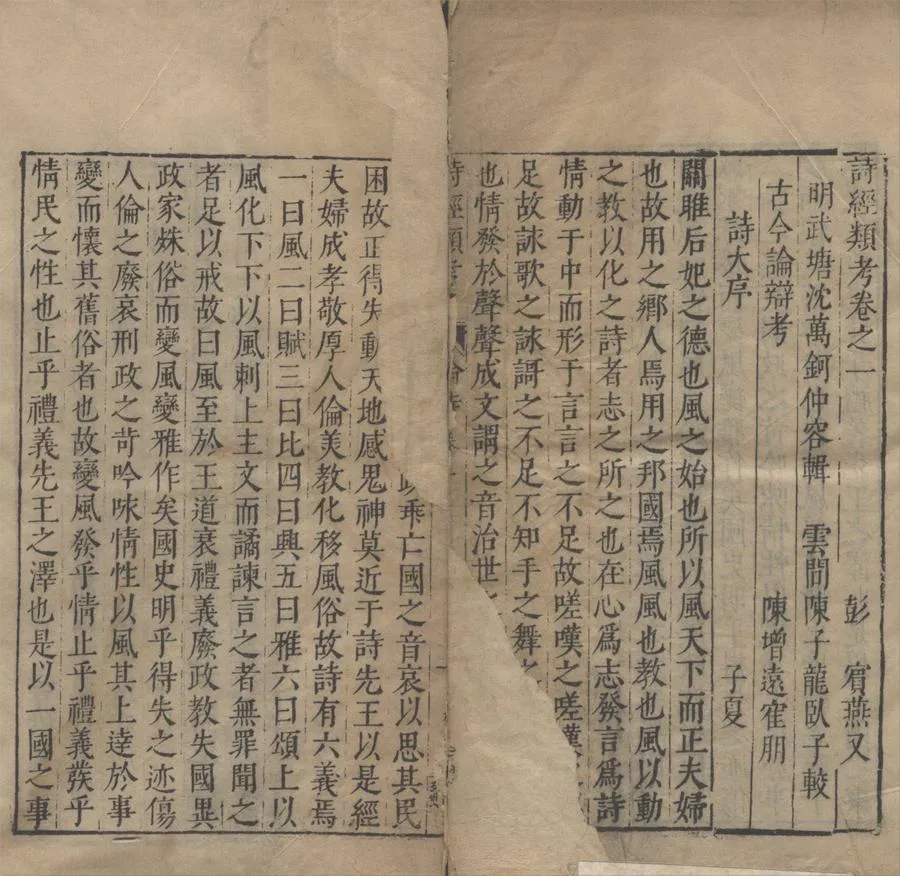 詩經類考卷之一 彭 賓燕又
明武塘沈萬鈳仲容輯 雲間陳子龍臥子較
古今論辯考 陳增遠寉朋
詩大序 子夏
關雎后妃之德也風之始也所以風天下而正夫婦
也故用之鄉人焉用之邦國焉風風也教也風以動
之教以化之詩者志之所之也在心爲志發言爲詩
情動于中而形于言言之不足故嗟嘆之嗟嘆
足故詠歌之詠謌之不足不知手之舞之
也情發於聲聲成文謂之音治世之
詩經類考
乖亡國之音哀以思其民
困故正得失動天地感鬼神莫近于詩先王以是經
夫婦成孝敬厚人倫美教化移風俗故詩有六義焉
一曰風二曰賦三曰比四曰興五曰雅六曰頌上以
風化下下以風刺上主文而譎諫言之者無罪聞之
者足以戒故曰風至於王道衰禮義廢政教失國異
政家殊俗而變風變雅作矣國史明乎得失之迹傷
人倫之廢哀刑政之苛吟咏情性以風其上達於事
變而懷其舊俗者也故變風發乎情止乎禮義發乎
情民之性也止乎禮義先王之澤也是以一國之事